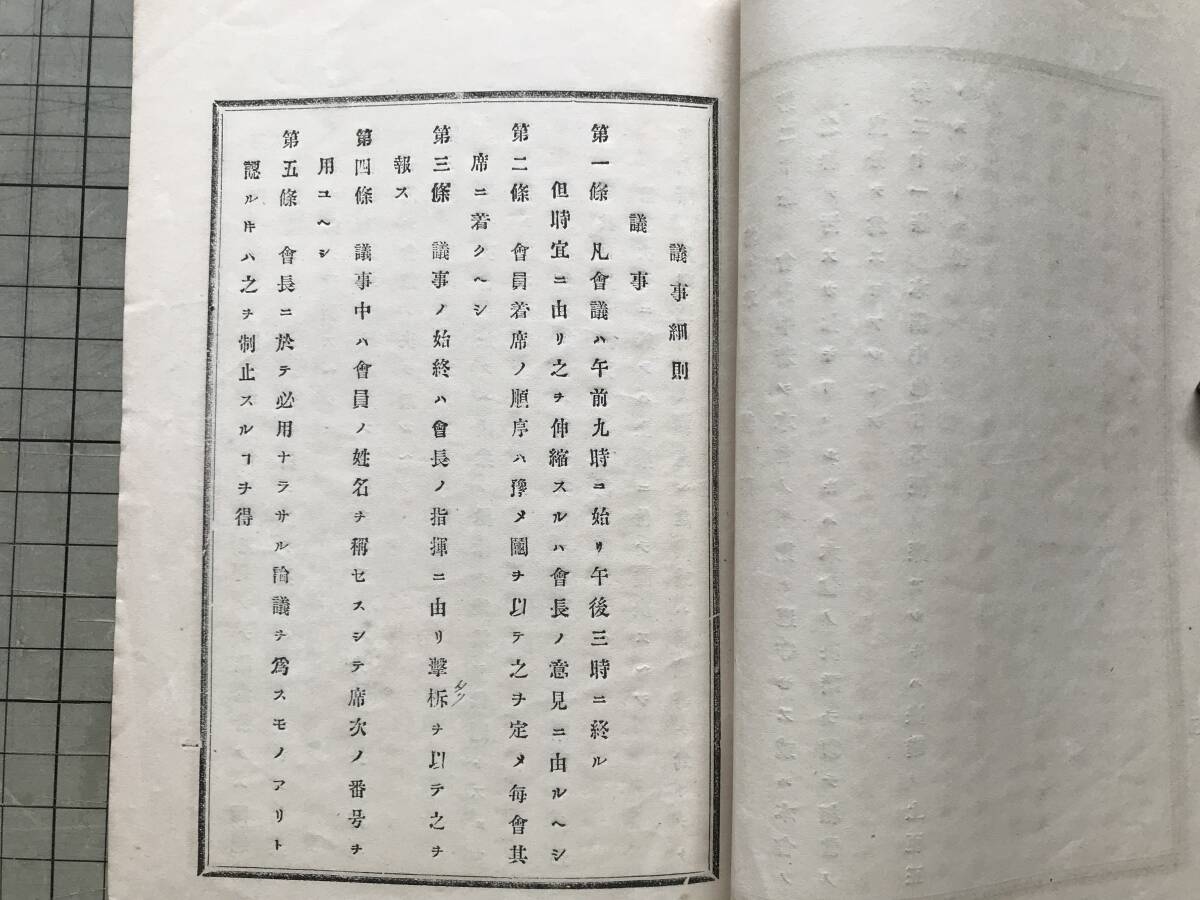 議事細則
議事
第一條　凡會議ハ午前九時ニ始リ午後三時ニ終ル
但時宜ニ由リ之ヲ伸縮スルハ會長ノ意見ニ由ルヘシ
第二條　會員着席ノ順序ハ豫メ圖ヲ以テ之ヲ定メ每會其
席ニ着クヘシ
第三條　議事ノ始終ハ會長ノ指揮ニ由リ擊柝ヲ以テ之ヲ
報ス
第四條　議事中ハ會員ノ姓名ヲ稱セスシテ席次ノ番号ヲ
用ユヘシ
第五條　會長ニ於テ必用ナラサル論議ヲ爲スモノアリト
認ルㇳキハ之ヲ制止スルヿヲ得
一